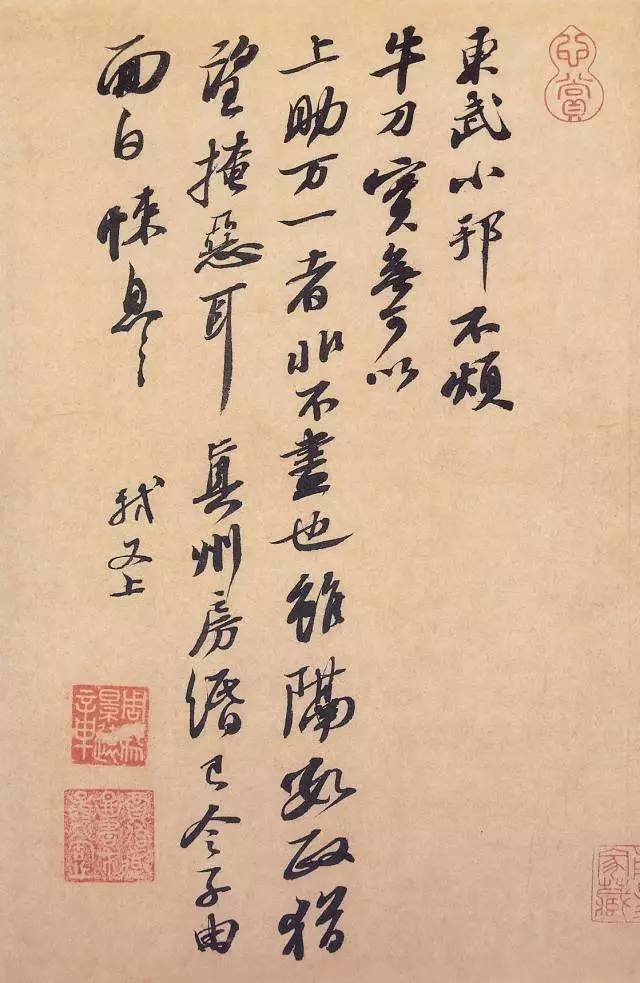 東武小邦不煩
牛刀實無可以
上助万一者非不盡也雖隔數政猶
望掩惡耳 真州房緡已令子由
面白悚息〻
軾又上
心賞
家藏